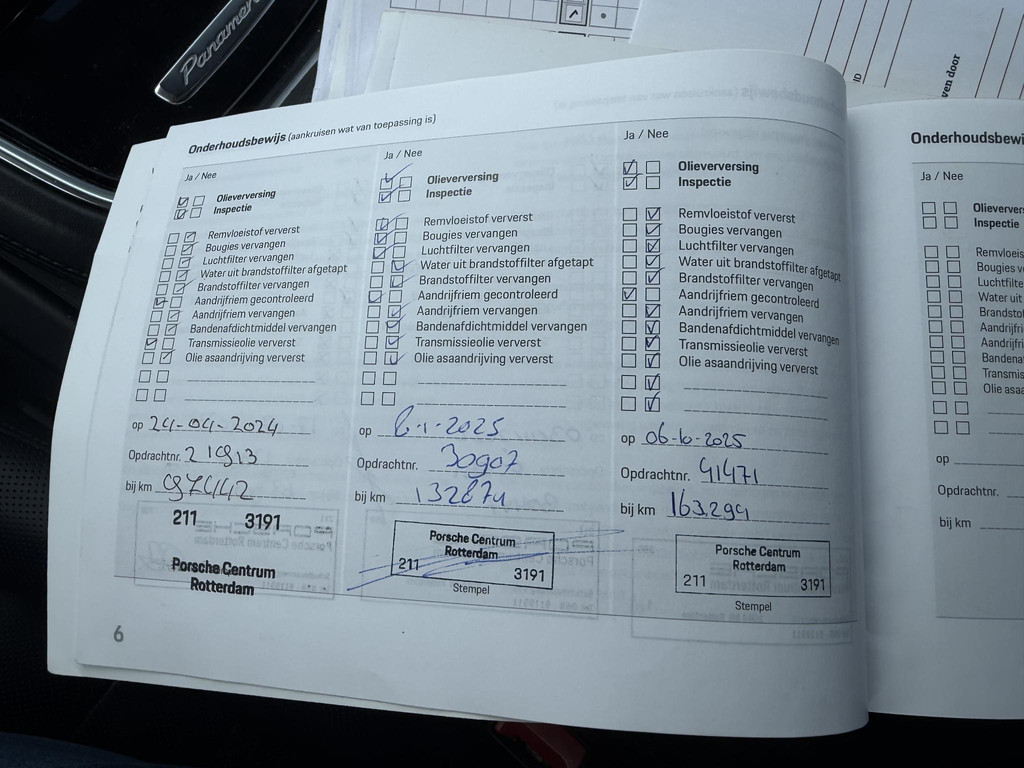 Panamera
ID
ven door
Onderhoudsbewijs (aankruisen wat van toepassing is)
Ja / Nee
Olieverversing
Inspectie
Remvloeistof ververst
Bougies vervangen
Luchtfilter vervangen
Water uit brandstoffilter afgetapt
Brandstoffilter vervangen
Aandrijfriem gecontroleerd
Aandrijfriem vervangen
Bandenafdichtmiddel vervangen
Transmissieolie ververst
Olie asaandrijving ververst
op 24-04-2024
Opdrachtnr. 21913
bij km 97442
211 3191
Porsche Centrum
Rotterdam
6
Ja / Nee
Olieverversing
Inspectie
Remvloeistof ververst
Bougies vervangen
Luchtfilter vervangen
Water uit brandstoffilter afgetapt
Brandstoffilter vervangen
Aandrijfriem gecontroleerd
Aandrijfriem vervangen
Bandenafdichtmiddel vervangen
Transmissieolie ververst
Olie asaandrijving ververst
op 6-1-2025
Opdrachtnr. 30907
bij km 132874
Porsche Centrum
Rotterdam
211 3191
Stempel
Ja / Nee
Olieverversing
Inspectie
Remvloeistof ververst
Bougies vervangen
Luchtfilter vervangen
Water uit brandstoffilter afgetapt
Brandstoffilter vervangen
Aandrijfriem gecontroleerd
Aandrijfriem vervangen
Bandenafdichtmiddel vervangen
Transmissieolie ververst
Olie asaandrijving ververst
op 06-10-2025
Opdrachtnr. 41471
bij km 163.294
Porsche Centrum
Rotterdam
211 3191
Stempel
Onderhoudsbewi
Ja / Nee
Olieverver
Inspectie
Remvloeis
Bougies ve
Luchtfilte
Water uit
Brandsto
Aandrijfri
Aandrijf
Bandena
Transmis
Olie asaa
op
Opdrachtnr.
bij km